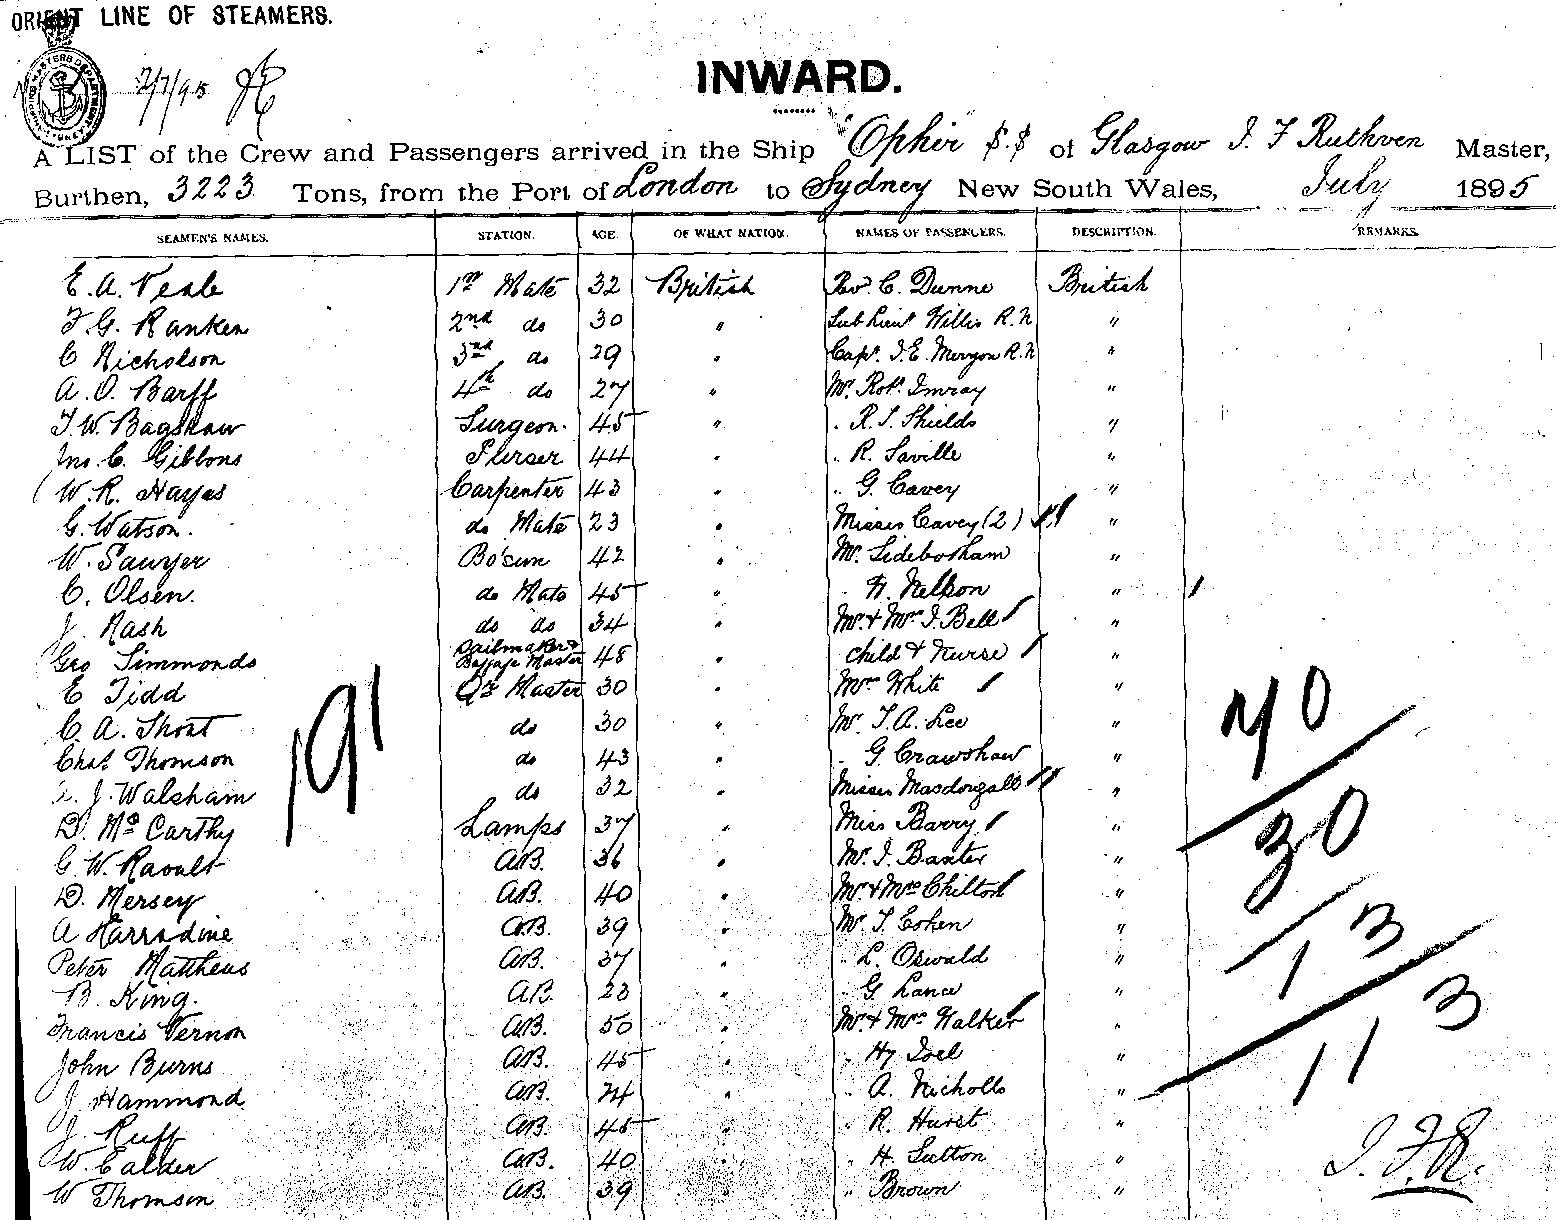 ORIENT LINE OF STEAMERS.
2/7/95
INWARD.
A LIST of the Crew and Passengers arrived in the Ship "Ophir S.S of Glasgow J. F Ruthven Master,
Burthen, 3223 Tons, from the Port of London to Sydney New South Wales, July 1895
SEAMEN'S NAMES. STATION. AGE. OF WHAT NATION. NAMES OF PASSENGERS. DESCRIPTION. REMARKS.
E. A. Veale 1st Mate 32 British Revd C. Dunne British
F. G. Ranken 2nd do 30 " Sub Lieut Willis R.N "
C Nicholson 3rd do 29 " Capt. J. E. R.N "
A. O. Barff 4th do 27 " Mr. Robt. Imray "
T. W. Bagshaw Surgeon. 45 " " R. S. Shields "
Jno. C. Gibbons Purser 44 " " R. Saville "
W. R. Hayes Carpenter 43 " " G. Cavey "
G. Watson. do Mate 23 " Misses Cavey (2) "
W. Sawyer Bo'sun 42 " Mr. Sidebotham "
C. Olsen. do Mate 45 " " Nelson "
J. Nash do do 34 " Mr. & Mrs J. Bell "
Geo Simmonds Sailmaker & Baggage Master 48 " child & Nurse "
E Tidd Qr Master 30 " Mrs White "
C. A. Short do 30 " Mr. T. A. Lee "
Chas Thomson do 43 " " G. Crawshaw "
J. Walsham do 32 " Misses Macdougall "
D. McCarthy Lamps 37 " Miss Barry "
G. W. Raoult AB. 36 " Mr. J. Baxter "
D. Mersey AB. 40 " Mr. & Mrs Chilton "
A Harradine AB. 39 " Mr. Cohen "
Peter Matthews AB. 37 " " L. Oswald "
B. King. AB. 23 " " G. Lance "
Francis Vernon AB. 50 " Mr. & Mrs Walker "
John Burns AB. 45 " " Hy Joel "
J. Hammond AB. 24 " " A. Nicholls "
J. Ruff AB. 45 " " R. Hurst "
W. Calder AB. 40 " " H. Sutton "
W Thomson AB. 39 " " Brown "
191
70
30
13
113
J. F. R.